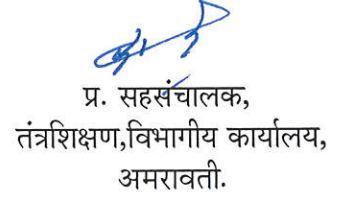 प्र. सहसंचालक,
तंत्रशिक्षण,विभागीय कार्यालय,
अमरावती.